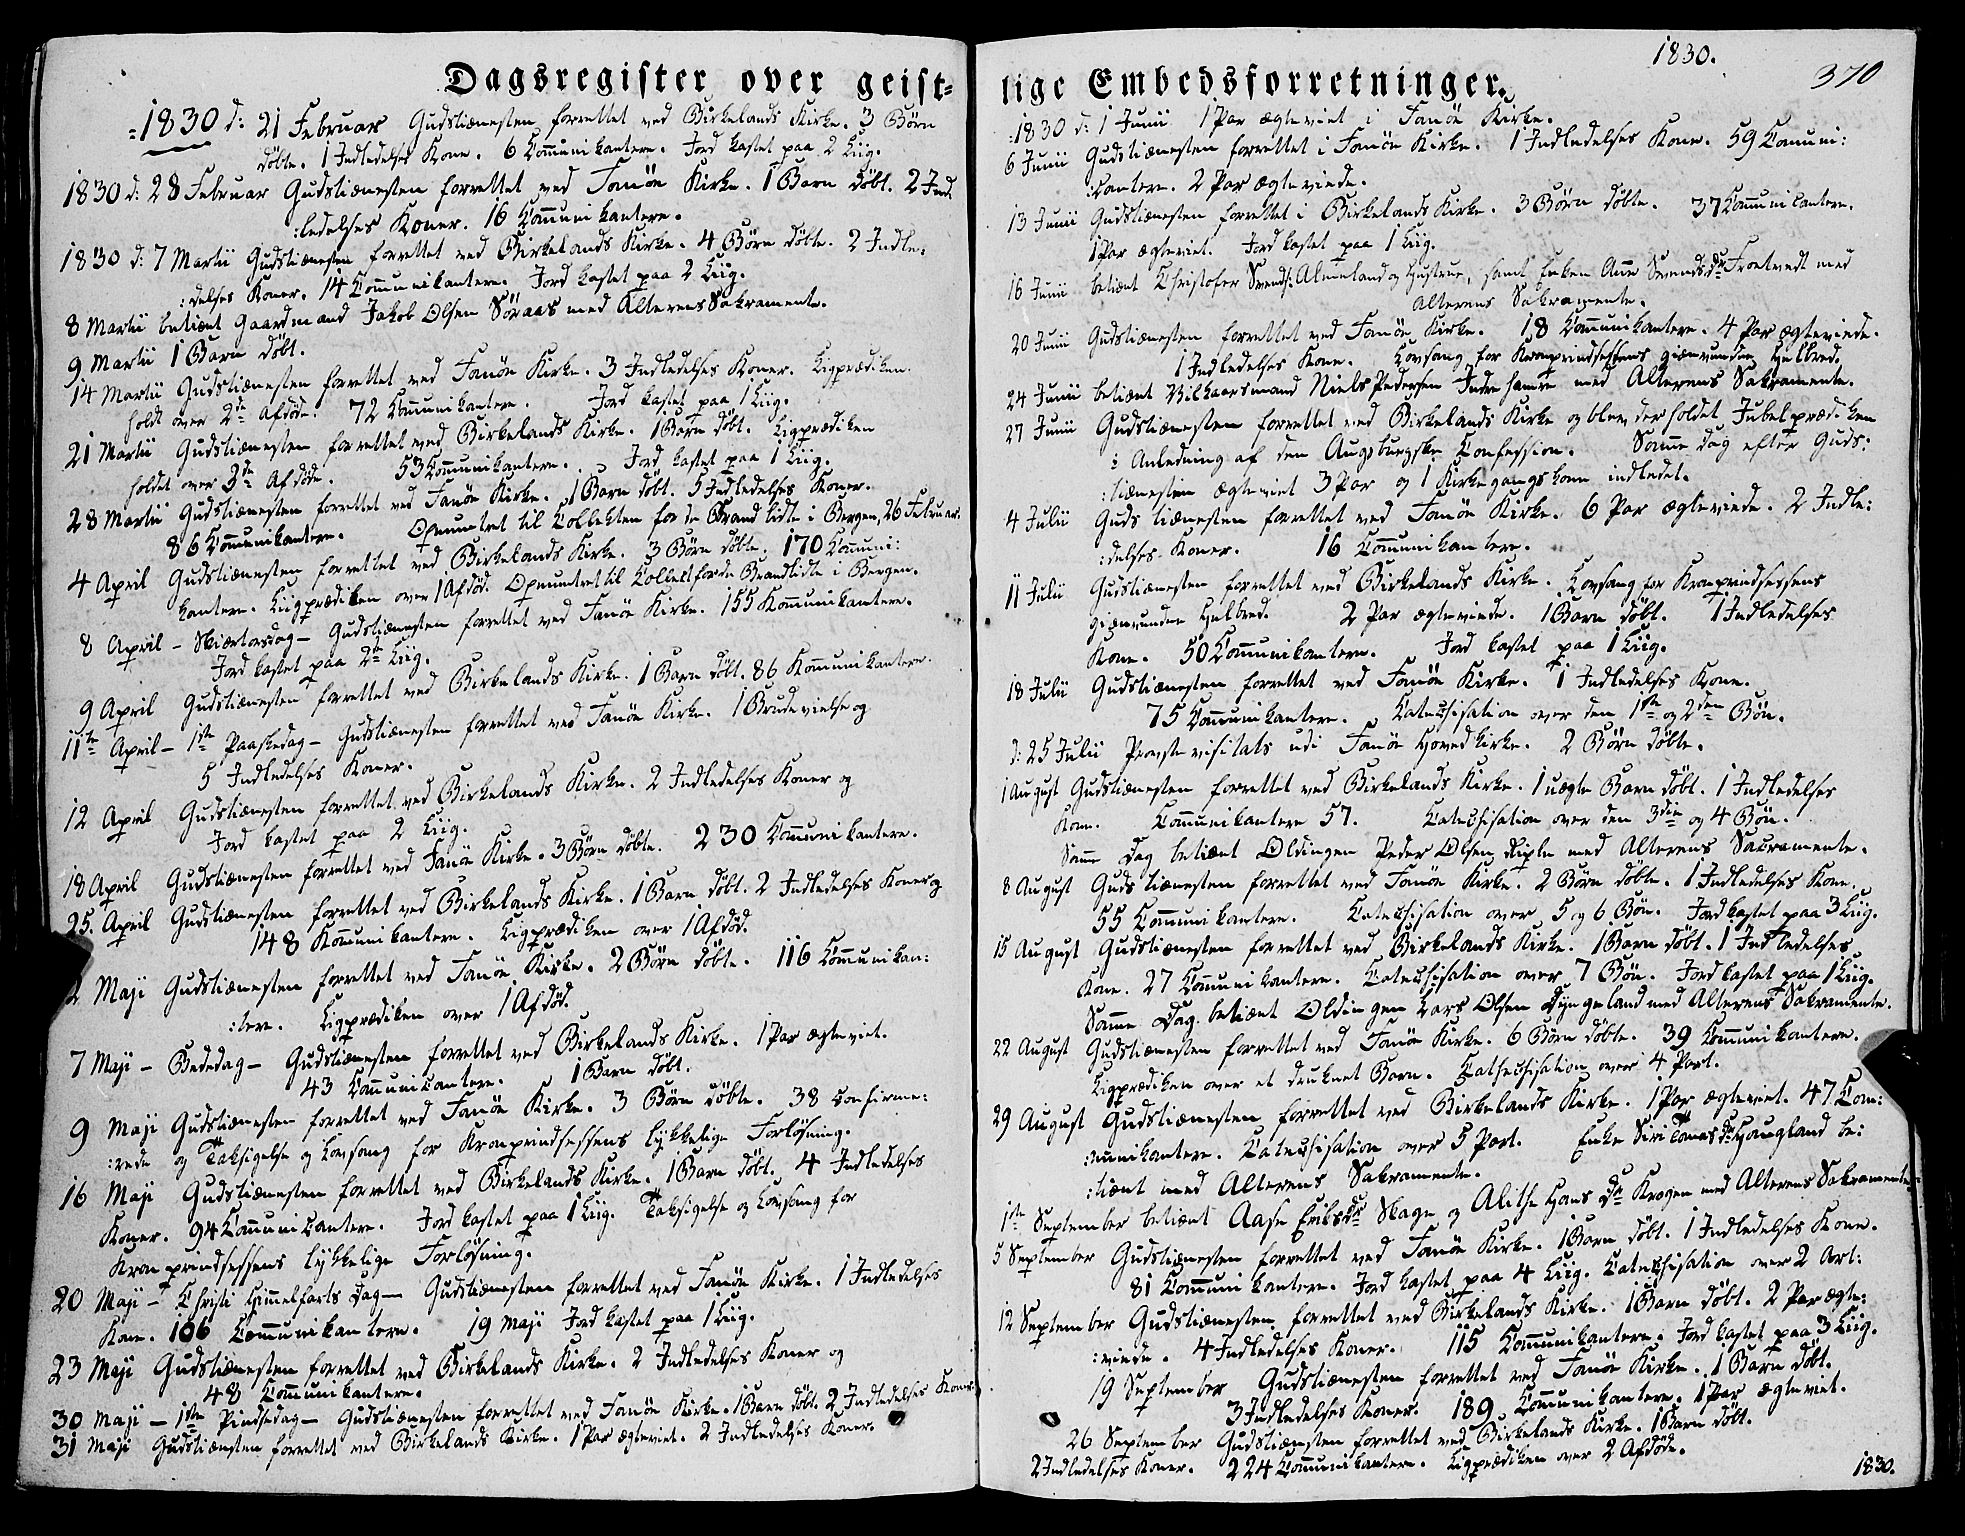 Dagsregister over geist=
:1830 d: 21 Februar Gudstiænesten forrettet ved Birkelands Kirke. 3 Børn
døbte. 1 Indledelses Kone. 6 Communikantere. Jord kastet paa 2 Liig.
1830 d: 28 Februar Gudstiænesten forrettet ved Fanöe Kirke. 1 Barn døbt. 2 Ind:
:ledelses Koner. 16 Communikantere.
1830 d: 7 Martii Gudstiænesten forrettet ved Birkelands Kirke. 4 Børn døbte. 2 Indle:
:delses Koner. 14 Communikantere. Jord kastet paa 2 Liig.
8 Martii betient Gaardmand Jakob Olsen Söraas med Alterens Sakramente.
9 Martii 1 Barn døbt.
14 Martii Gudstiænesten forrettet ved Fanöe Kirke. 3 Indledelses Koner. Ligprædiken
holdt over 2de Afdøde. 72 Communikantere. Jord kastet paa 1 Liig.
21 Martii Gudstiænesten forrettet ved Birkelands Kirke. 1 Barn døbt. Ligprædiken
holdet over 3de Afdøde. 53 Communikantere. Jord kastet paa 1 Liig.
28 Martii Gudstiænesten forrettet ved Fanöe Kirke. 1 Barn døbt. 5 Indledelses Koner.
86 Communikantere. Opmuntret til Collekten for de Brandlidte i Bergen, 26 Februar.
4 April Gudstiænesten forrettet ved Birkelands Kirke. 3 Børn døbte. 170 Communi:
kantere. Liigprædiken over 1 Afdød. Opmuntret til Collekt for de Brandlidte i Bergen.
8 April – Skiærtorsdag – Gudstiænesten forrettet ved Fanöe Kirke. 155 Kommunikantere.
Jord kastet paa 2de Liig.
9 April Gudstiænesten forrettet ved Birkelands Kirke. 1 Barn døbt. 86 Kommunikantere.
11te April – 1ste Paaskedag – Gudstiænesten forrettet ved Fanöe Kirke. 1 Brudevielse og
5 Indledelses Koner.
12 April Gudstiænesten forrettet ved Birkelands Kirke. 2 Indledelses Koner og
Jord kastet paa 2 Liig.
18 April Gudstiænesten forrettet ved Fanöe Kirke. 3 Børn døbte. 230 Communikantere.
25. April Gudstiænesten forrettet ved Birkelands Kirke. 1 Barn døbt. 2 Indledelses Koner og
148 Kommunikantere. Ligprædiken over 1 Afdød.
2 Maji Gudstiænesten forrettet ved Fanöe Kirke. 2 Børn døbte. 116 Communikan:
:tere. Ligprædiken over 1 Afdød.
7 Maji – Bededag – Gudstiænesten forrettet ved Birkelands Kirke. 1 Par ægteviet.
43 Communicantere. 1 Barn døbt.
9 Maji Gudstiænesten forrettet ved Fanöe Kirke. 3 Børn døbte. 38 Confirme:
:rede og Taksigelse og Lovsang for Kronprindsessens lykkelige Forløsning.
16 Maji Gudstiænesten forrettet ved Birkelands Kirke. 1 Barn døbt. 4 Indledelses
Koner. 94 Communicantere. Jord kastet paa 1 Liig. Taksigelse og Lovsang for
Kronprindsessens lykkelige Forløsning.
20 Maji – Christi Himmelfarts Dag – Gudstiænesten forrettet ved Fanöe Kirke. 1 Indledelses
Kone. 106 Communikantere. 19 Maji Jord kastet paa 1 Liig.
23 Maji Gudstiænesten forrettet ved Birkelands Kirke. 2 Indledelses Koner og
48 Communikantere.
30 Maji – 1ste Pindsedag – Gudstiænesten forrettet ved Fanöe Kirke. 1 Barn døbt. 2 Indledelses Koner.
31 Maji Gudstiænesten forrettet ved Birkelands Kirke. 1 Par ægteviet. 2 Indledelses Koner.
1830.
370
lige Embedsforretninger.
:1830 d: 1 Junii 1 Par ægteviet i Fanöe Kirke.
6 Junii Gudstiænesten forrettet i Fanöe Kirke. 1 Indledelses Kone. 59 Communi:
:cantere. 2 Par ægteviede.
13 Junii Gudstiænesten forrettet i Birkelands Kirke. 3 Børn døbte. 37 Communicantere.
1 Par ægteviet. Jord kastet paa 1 Liig.
16 Junii betient Christofer Svends: Almeland og Hustrue, samt Enken Anne Svendsdr Tveetvedt med
Alterens Sakramente.
20 Junii Gudstiænesten forrettet ved Fanöe Kirke. 18 Communikantere. 4 Par ægteviede.
1 Indledelses Kone. Lovsang for Kronprindsessens gienvundne Helbred.
24 Junii betient Vilkaarsmand Niels Pedersen Indre hamre med Alterens Sakramente.
27 Junii Gudstiænesten forrettet ved Birkelands Kirke og blev der holdet Jubelprædiken
i Anledning af den Augsburgske Confession. Samme Dag efter Guds:
:tiænesten ægteviet 3 Par og 1 Kirkegangskone indledet.
4 Julii Gudstiænesten forrettet ved Fanöe Kirke. 6 Par ægteviede. 2 Indle:
:delses Koner. 16 Communikantere.
11 Julii Gudstiænesten forrettet ved Birkelands Kirke. Lovsang for Kronprindsessens
gienvundne Helbred. 2 Par ægteviede. 1 Barn døbt. 1 Indledelses
Kone. 50 Communikantere. Jord kastet paa 1 Liig.
18 Julii Gudstiænesten forrettet ved Fanöe Kirke. 1 Indledelses Kone.
75 Communikantere. Catechisation over den 1ste og 2den Bön.
d: 25 Julii Provstevisitats udi Fanöe Hovedkirke. 2 Børn døbte.
1 August Gudstiænesten forrettet ved Birkelands Kirke. 1 uægte Barn døbt. 1 Indledelses
Kone. Communikantere 57. Catechisation over den 3die og 4 Bön.
Samme Dag betient Oldingen Peder Olsen Riple med Alterens Sacramente.
8 August Gudstiænesten forrettet ved Fanöe Kirke. 2 Børn døbte. 1 Indledelses Kone.
55 Communikantere. Catechisation over 5 og 6 Bön. Jord kastet paa 3 Liig.
15 August Gudstiænesten forrettet ved Birkelands Kirke. 1 Barn døbt. 1 Indledelses
Kone. 27 Communikantere. Catechisation over 7 Bön. Jord kastet paa 1 Liig.
Samme Dag betient Oldingen Lars Olsen Dyngeland med Alterens Sakramente.
22 August Gudstiænesten forrettet ved Fanöe Kirke. 6 Børn døbte. 39 Communikantere.
Ligprædiken over et druknet Barn. Cathechisation over 4 Part.
29 August Gudstiænesten forrettet ved Birkelands Kirke. 1 Par ægteviet. 47 Com:
:munikantere. Catechisation over 5 Part. Enke Siri Tomasdr Hougland be:
:tient med Alterens Sakramente.
1ste September betient Aase Eriksdr Skage og Alithe Hansdr Krogen med Alterens Sakramente.
5 September Gudstiænesten forrettet ved Fanöe Kirke. 1 Barn døbt. 1 Indledelses Kone.
81 Communikantere. Jord kastet paa 4 Liig. Catechisation over 2 Art:
12 September Gudstiænesten forrettet ved Birkelands Kirke. 1 Barn døbt. 2 Par ægte:
:viede. 4 Indledelses Koner. 115 Communikantere. Jord kastet paa 3 Liig.
19 September Gudstiænesten forrettet ved Fanöe Kirke. 1 Barn døbt.
3 Indledelses Koner. 189 Communikantere. 1 Par ægteviet.
26 September Gudstiænesten forrettet ved Birkelands Kirke. 1 Barn døbt.
2 Indledelses Koner. 224 Communikantere. Ligprædiken over 2 Afdøde.
1830.